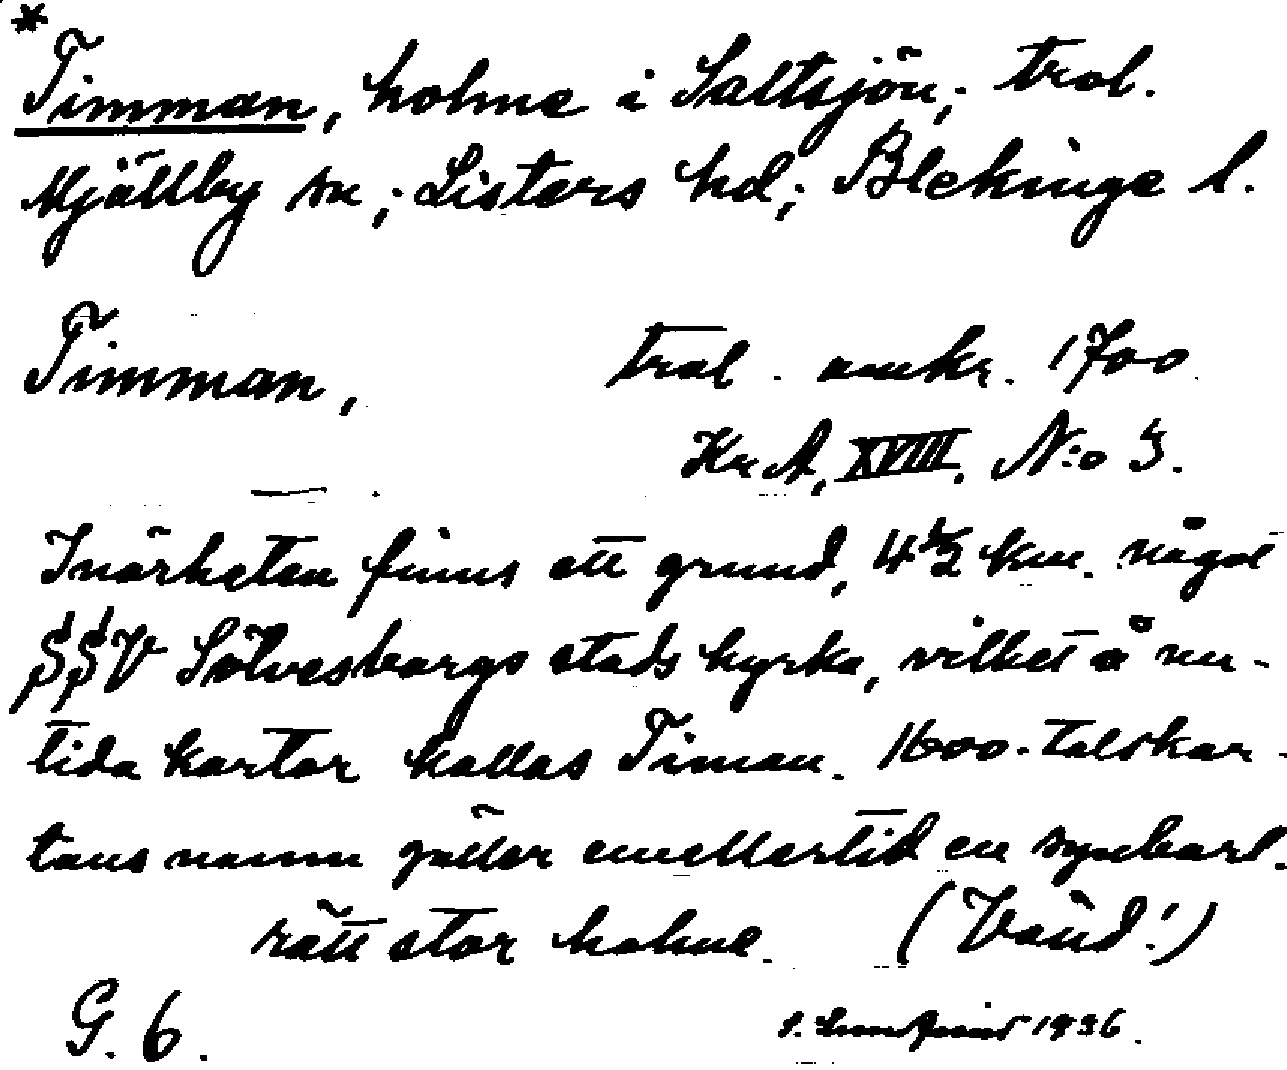 *
Timman, holme i Saltsjön, trol.
Mjällby sn, Listers hd; Blekinge l.
Timman, trol. omkr. 1700
KrA, XVIII. N:o 3.
I närheten finns ett grund, 4 1/2 km. något
SSV Sölvesborgs stads kyrka, vilket å nu-
tida kartor kallas Timan. 1600-talskar-
tans namn gäller emellertid en synbarl.
rätt stor holme. (Vänd!)
G. 6.
1936.